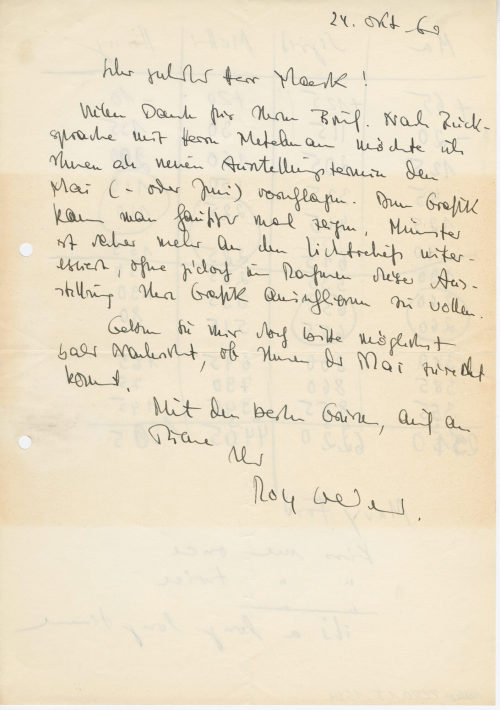 24. Okt. 60
Sehr geehrter Herr Mack!
Vielen Dank für Ihren Brief. Nach Rück-
sprache mit Herrn Metelmann möchte ich
Ihnen als neuen Ausstellungstermin den
Mai (- oder Juni) vorschlagen. Ihre Grafik
kann man häufiger mal zeigen, Münster
ist daher mehr an den Lichtreliefs inter-
essiert, ohne jedoch im Rahmen dieser Aus-
stellung Ihre Grafik ausschließen zu wollen.
Geben Sie mir doch bitte möglichst
bald Nachricht, ob Ihnen der Mai zurecht
kommt.
Mit den besten Grüssen, auch an
Ihr
Rolf